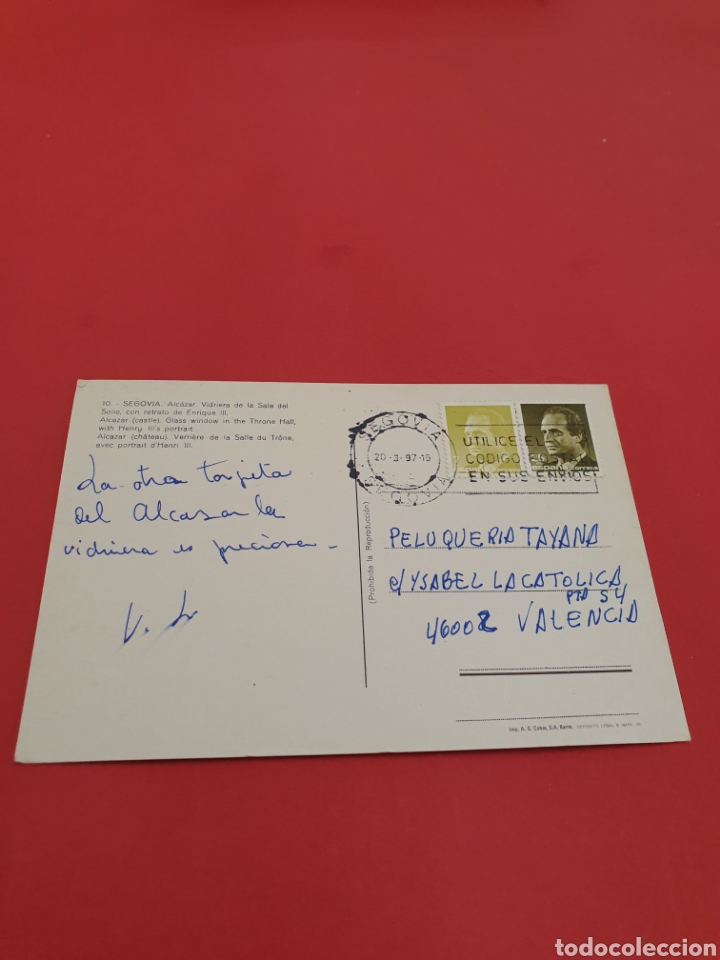 10. - SEGOVIA. Alcázar. Vidriera de la Sala del
Solio, con retrato de Enrique III.
Alcazar (castle). Glass window in the Throne Hall,
with Henry III's portrait.
Alcazar (château). Verrière de la Salle du Trône,
avec portrait d'Henri III.
La otra tarjeta
del Alcasar la
vidriera es preciosa -
(Prohibida la Reproducción)
SEGOVIA
20-3-97-15
SEGOVIA
UTILICE EL
CODIGO POSTAL
EN SUS ENVIOS
españa correos
PELUQUERIA TAYANA
c/ YSABEL LACATOLICA,
PTA 54
46002 VALENCIA
Imp. A. G. Cobas, S.A. Barna.
todocoleccion
todocoleccion.net